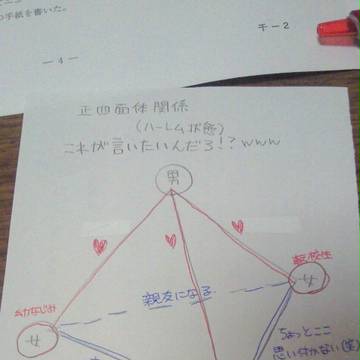 の手紙を書いた。
— 4 —
チー2
正四面体関係
(ハーレム状態)
これが言いたいんだろ!?www
男
幼なじみ
転校生
親友になる
女
女
ちょっとここ
思い付かない(笑)